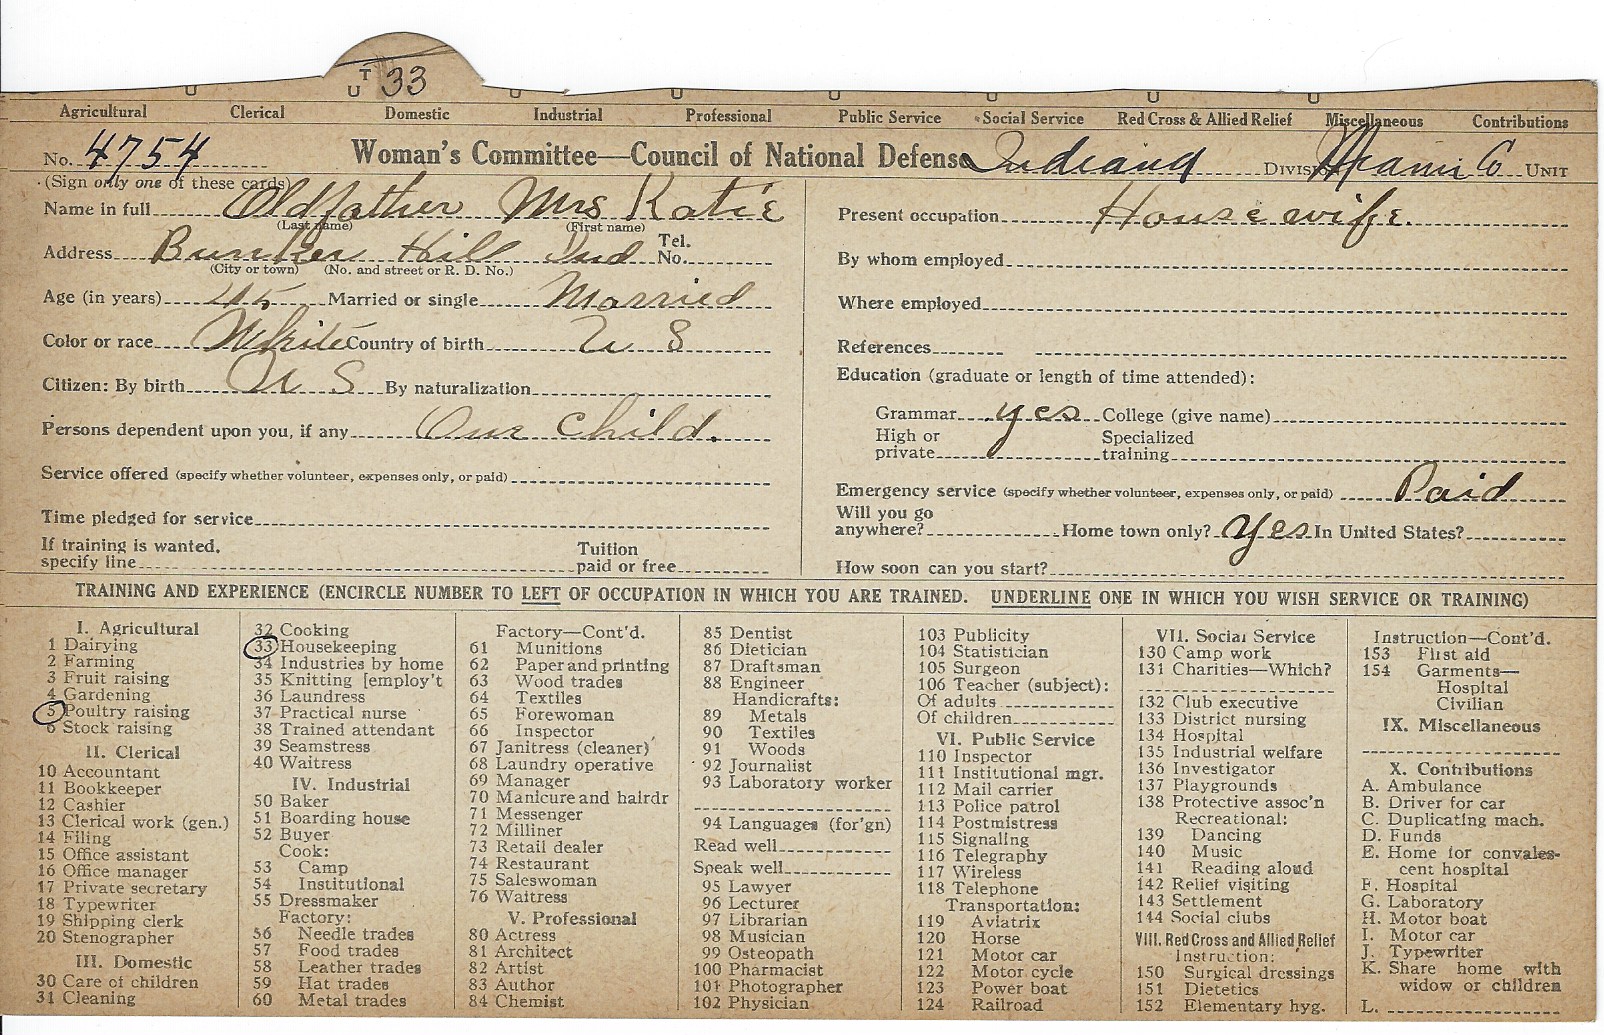 T
U 33
Agricultural Clerical Domestic Industrial Professional Public Service Social Service Red Cross & Allied Relief Miscellaneous Contributions
No. 4754 Woman's Committee—Council of National Defense Indiana Division Miami Co UNIT
(Sign only one of these cards)
Name in full Oldfather Mrs Katie
(Last name) (First name)
Address Bunker Hill Ind Tel. No.
(City or town) (No. and street or R. D. No.)
Age (in years) 45 Married or single Married
Color or race White Country of birth U S
Citizen: By birth U S By naturalization
Persons dependent upon you, if any One child.
Service offered (specify whether volunteer, expenses only, or paid)
Time pledged for service
If training is wanted, specify line Tuition paid or free
Present occupation House wife.
By whom employed
Where employed
References
Education (graduate or length of time attended):
Grammar yes College (give name)
High or private Specialized training
Emergency service (specify whether volunteer, expenses only, or paid) Paid
Will you go anywhere? Home town only? yes In United States?
How soon can you start?
TRAINING AND EXPERIENCE (ENCIRCLE NUMBER TO LEFT OF OCCUPATION IN WHICH YOU ARE TRAINED. UNDERLINE ONE IN WHICH YOU WISH SERVICE OR TRAINING)
I. Agricultural
1 Dairying
2 Farming
3 Fruit raising
4 Gardening
5 Poultry raising
6 Stock raising
II. Clerical
10 Accountant
11 Bookkeeper
12 Cashier
13 Clerical work (gen.)
14 Filing
15 Office assistant
16 Office manager
17 Private secretary
18 Typewriter
19 Shipping clerk
20 Stenographer
III. Domestic
30 Care of children
31 Cleaning
32 Cooking
33 Housekeeping
34 Industries by home
35 Knitting [employ't
36 Laundress
37 Practical nurse
38 Trained attendant
39 Seamstress
40 Waitress
IV. Industrial
50 Baker
51 Boarding house
52 Buyer
Cook:
53 Camp
54 Institutional
55 Dressmaker
Factory:
56 Needle trades
57 Food trades
58 Leather trades
59 Hat trades
60 Metal trades
Factory—Cont'd.
61 Munitions
62 Paper and printing
63 Wood trades
64 Textiles
65 Forewoman
66 Inspector
67 Janitress (cleaner)
68 Laundry operative
69 Manager
70 Manicure and hairdr
71 Messenger
72 Milliner
73 Retail dealer
74 Restaurant
75 Saleswoman
76 Waitress
V. Professional
80 Actress
81 Architect
82 Artist
83 Author
84 Chemist
85 Dentist
86 Dietician
87 Draftsman
88 Engineer
Handicrafts:
89 Metals
90 Textiles
91 Woods
92 Journalist
93 Laboratory worker
94 Languages (for'gn)
Read well
Speak well
95 Lawyer
96 Lecturer
97 Librarian
98 Musician
99 Osteopath
100 Pharmacist
101 Photographer
102 Physician
103 Publicity
104 Statistician
105 Surgeon
106 Teacher (subject):
Of adults
Of children
VI. Public Service
110 Inspector
111 Institutional mgr.
112 Mail carrier
113 Police patrol
114 Postmistress
115 Signaling
116 Telegraphy
117 Wireless
118 Telephone
Transportation:
119 Aviatrix
120 Horse
121 Motor car
122 Motor cycle
123 Power boat
124 Railroad
VII. Social Service
130 Camp work
131 Charities—Which?
132 Club executive
133 District nursing
134 Hospital
135 Industrial welfare
136 Investigator
137 Playgrounds
138 Protective assoc'n
Recreational:
139 Dancing
140 Music
141 Reading aloud
142 Relief visiting
143 Settlement
144 Social clubs
VIII. Red Cross and Allied Relief
Instruction:
150 Surgical dressings
151 Dietetics
152 Elementary hyg.
Instruction—Cont'd.
153 First aid
154 Garments—
Hospital
Civilian
IX. Miscellaneous
X. Contributions
A. Ambulance
B. Driver for car
C. Duplicating mach.
D. Funds
E. Home for convales-
cent hospital
F. Hospital
G. Laboratory
H. Motor boat
I. Motor car
J. Typewriter
K. Share home with
widow or children
L.